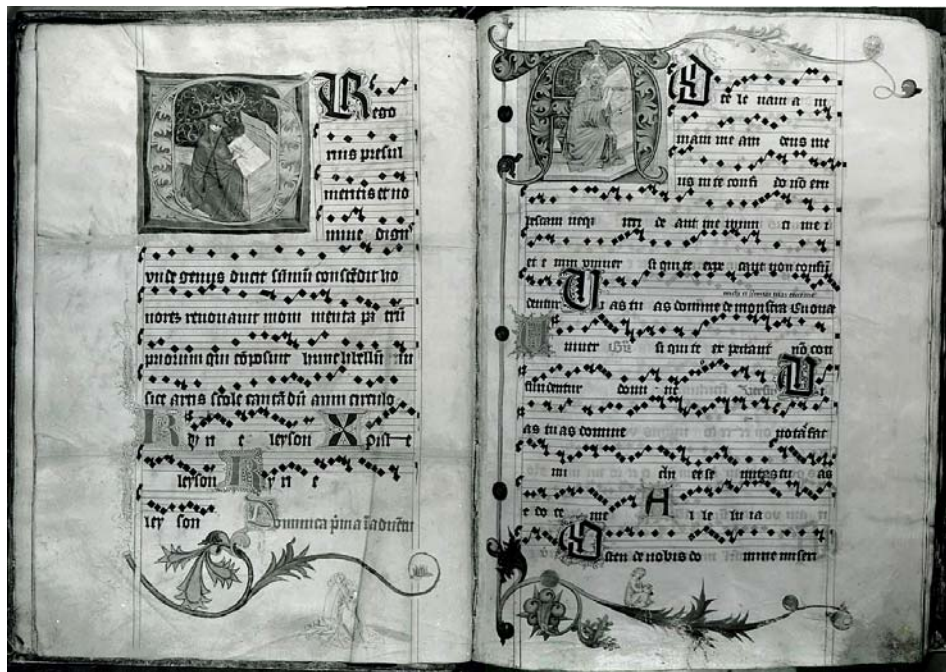 Grego
rius presul
meritis et no
mine dign'
vnde genus ducit sūmū conscēdit ho
nores renouauit moni menta pr̄ trū
priorum qui cōposuit hunc libellū mu
sice artis scole cantādū anni circulo
Ky ri e leyson Xpist e
leyson Ky ri e
ley son Dominica p̄ma
Ad te le uaui a ni
mam me am deus me
us in te confi do nō eru
bescam neqz irri de ant me inimi ci me i
et e nim vniuer si qui te expe ctant non confū
dentur Vi as tu as domine demonstra
Vniuer si qui te ex pectant nō con
fundentur domi ne Vi
as tu as domine notas fac
mi chi et se mitas tu as
e do ce me A l le lu ia
Osten de nobis do mine miseri